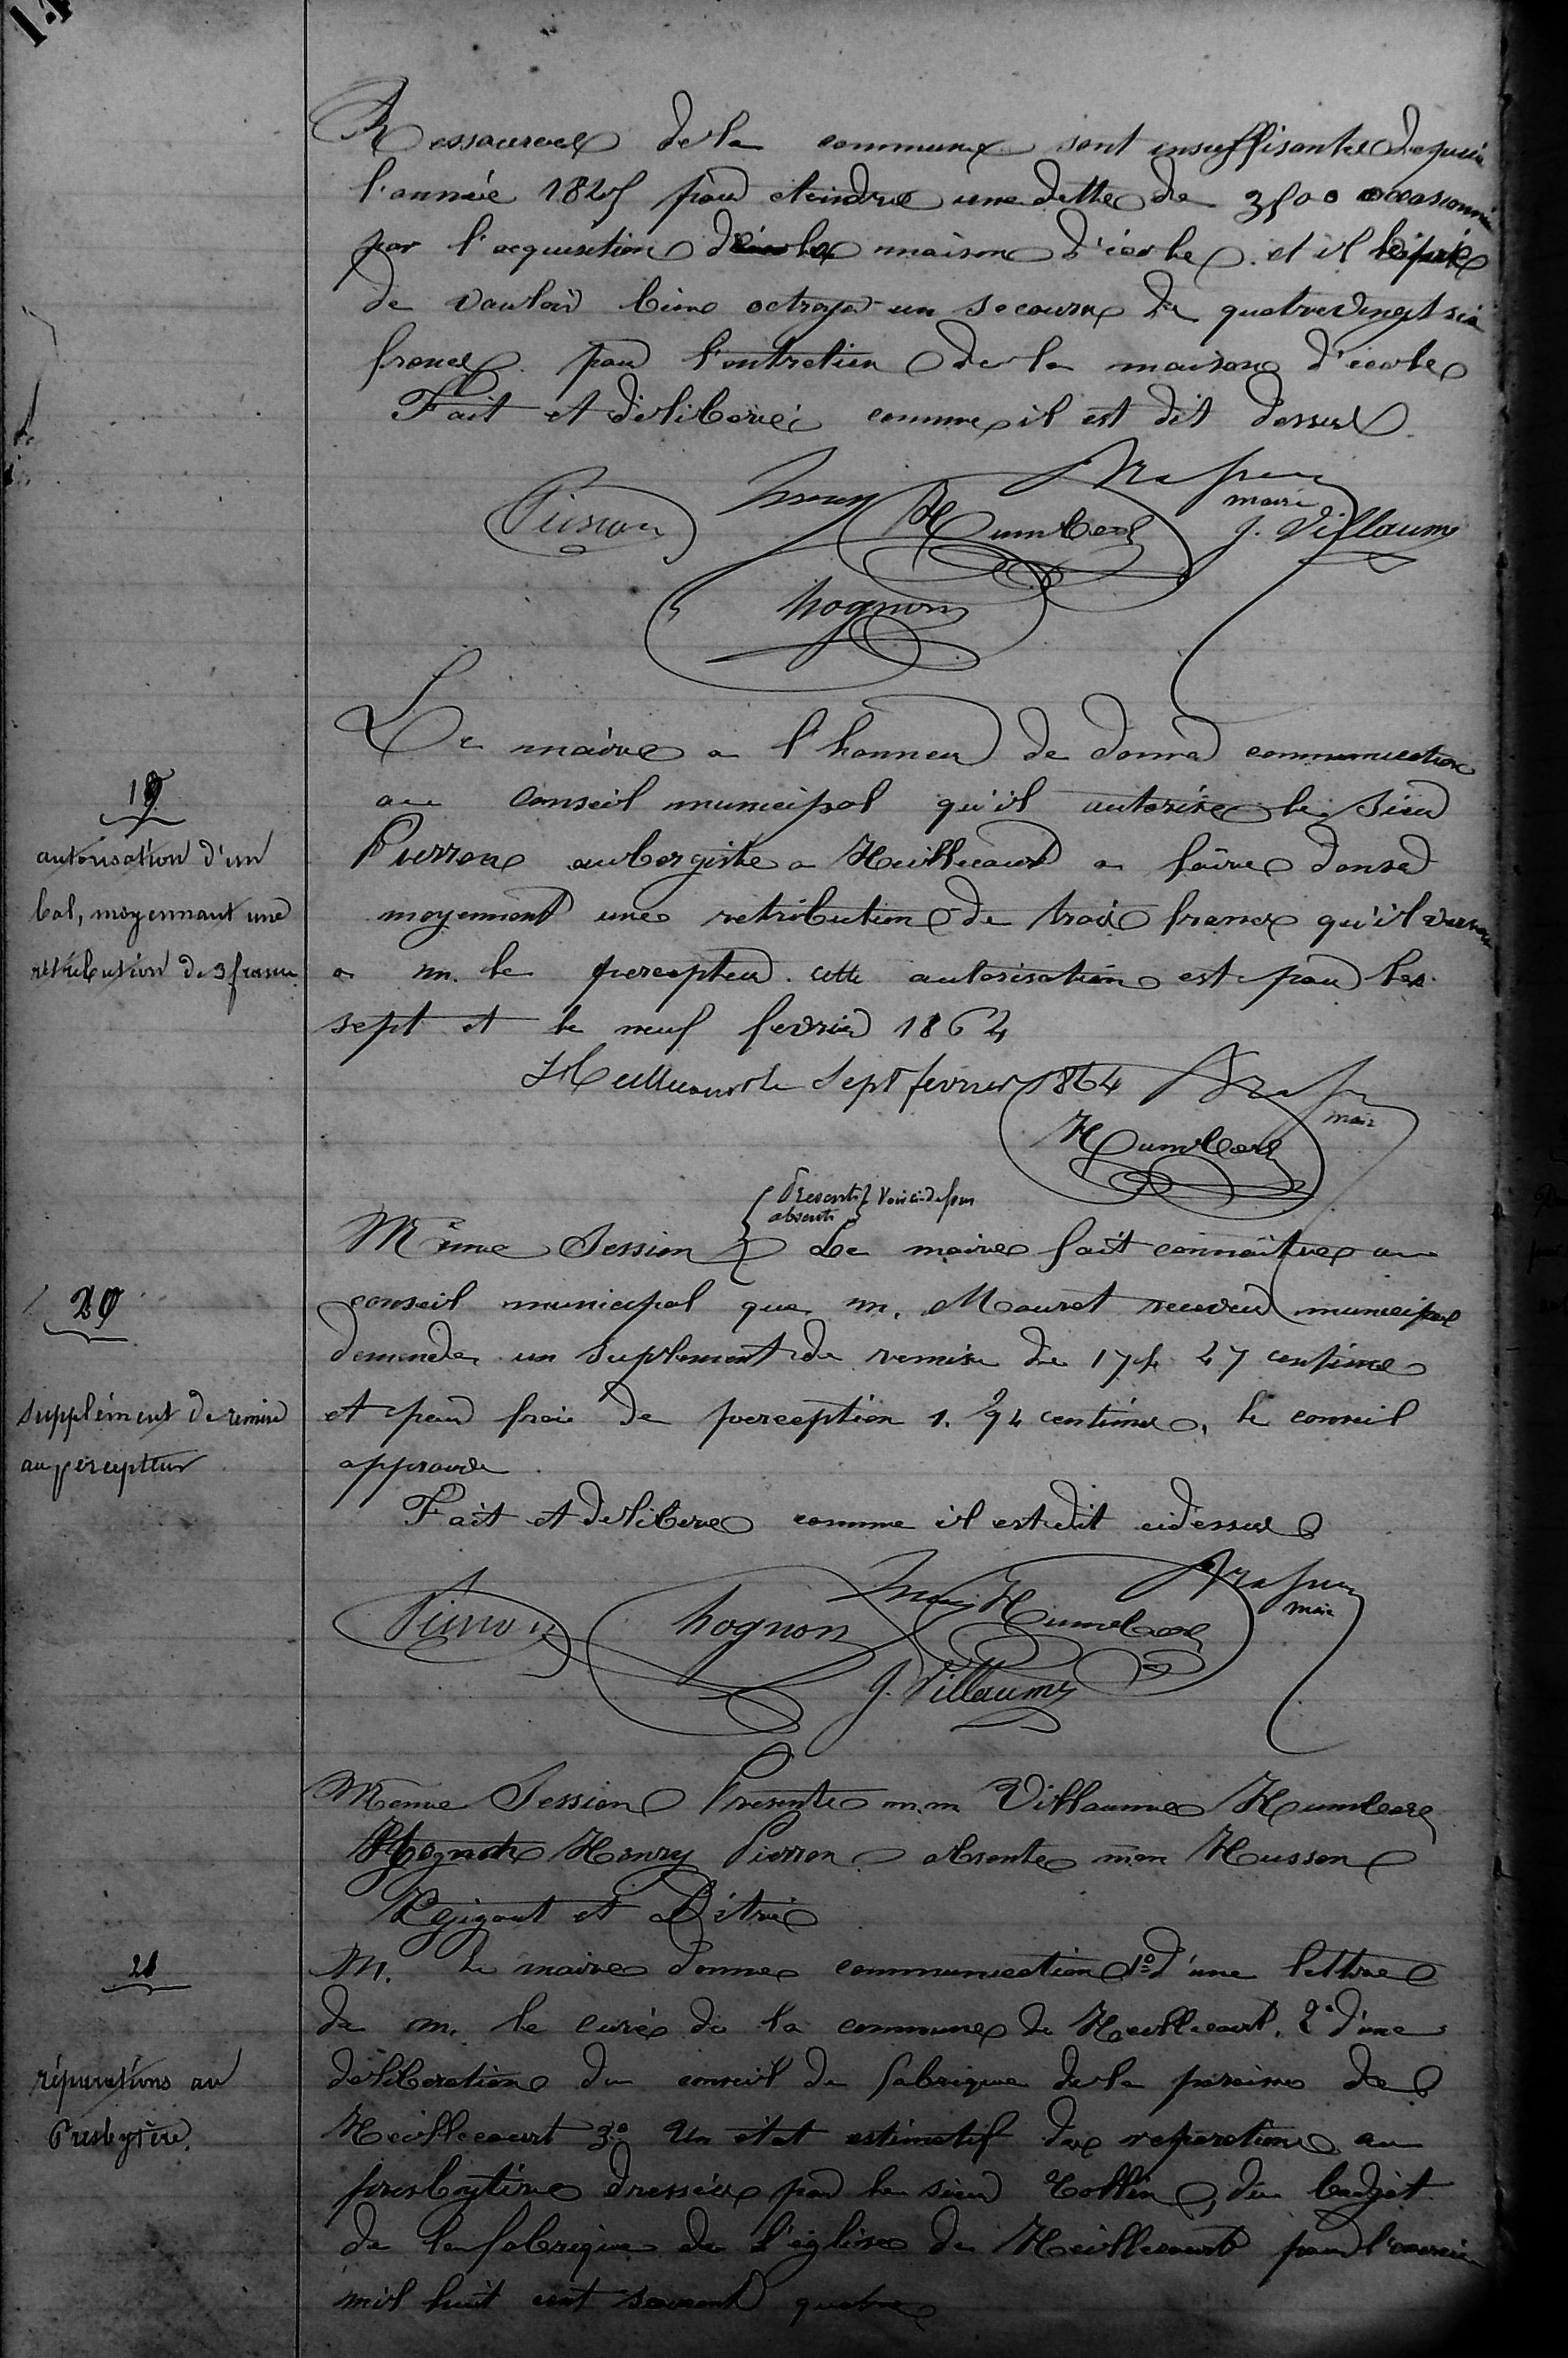 Ressources de la commune sont insuffisantes depuis
l'année 1825 pour eteindre une dette de 3500 occasionnée
par l'acquisition maison d'école. et il
de vouloir bien octroyer un secours de quatrevingt six
francs. pour l'entretien de la maison d'école
Fait et déliberée comme il est dit dessus
maire
Pierron Humbert J. Villaume
hognon
Le maire a l'honneur de donner communication
19
au Conseil municipal qu'il autorise le sieur
autorisation d'un
Pierron aubergiste a Heillecourt a faire danser
bal, moyennant une
moyennant une retribution de trois francs qu'il versera
rétribution de 3 francs
a m. le percepteur. cette autorisation est pour les
sept et le neuf fevrier 1864
Heillecourt le sept fevrier 1864
maire
Humbert
Presents } Voir ci-dessus
absents
Même Session Le maire fait connaitre au
20
conseil municipal que m. Mauret receveur municipal
demande un suplement de remise de 17f 27 centimes
supplément de remise
et pour frais de perception 1.f 94 centimes, le conseil
au percepteur
approuve
Fait et deliberé comme il est dit cidessus
maire
Pierron hognon Humbert
J. Villaume
Même Session Presents m.m Villaume Humbert
Hognon Henry Pierron absents mm Husson
et Détrie
21
M. le maire donne communication 1º d'une lettre
de m. le curé de la commune de Heillecourt. 2º d'une
réparations au
déliberation du conseil de fabrique de la paroisse de
Presbytère.
Heillecourt 3º Un état estimatif des reparations au
presbytère dressée par le sieur Collin, du budjet
de la fabrique de l'église de Heillecourt pour l'exercice
mil huit cent soixante quatre